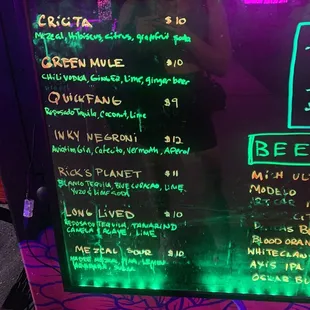 CRICITA $10
Mezcal, Hibiscus, citrus, grapefruit soda
GREEN MULE $10
CHILI VODKA, GINGER, Lime, ginger beer
QUICKFANG $9
Reposado Tequila, Coconut, Lime
INKY NEGRONI $12
Aviation Gin, Cafecito, Vermouth, Aperol
RICK'S PLANET $11
BLANCO TEQUILA, BLUE CURACAO, LIME,
YUZU & LIME SODA
LONG LIVED $10
REPOSADO TEQUILA, TAMARIND
CANELA & AGAVE, LIME
MEZCAL SOUR $10
BEE
MICH UL
MODELO
BLOOD ORAN
WHITECLAW
AXIS IPA
OSKAR BL